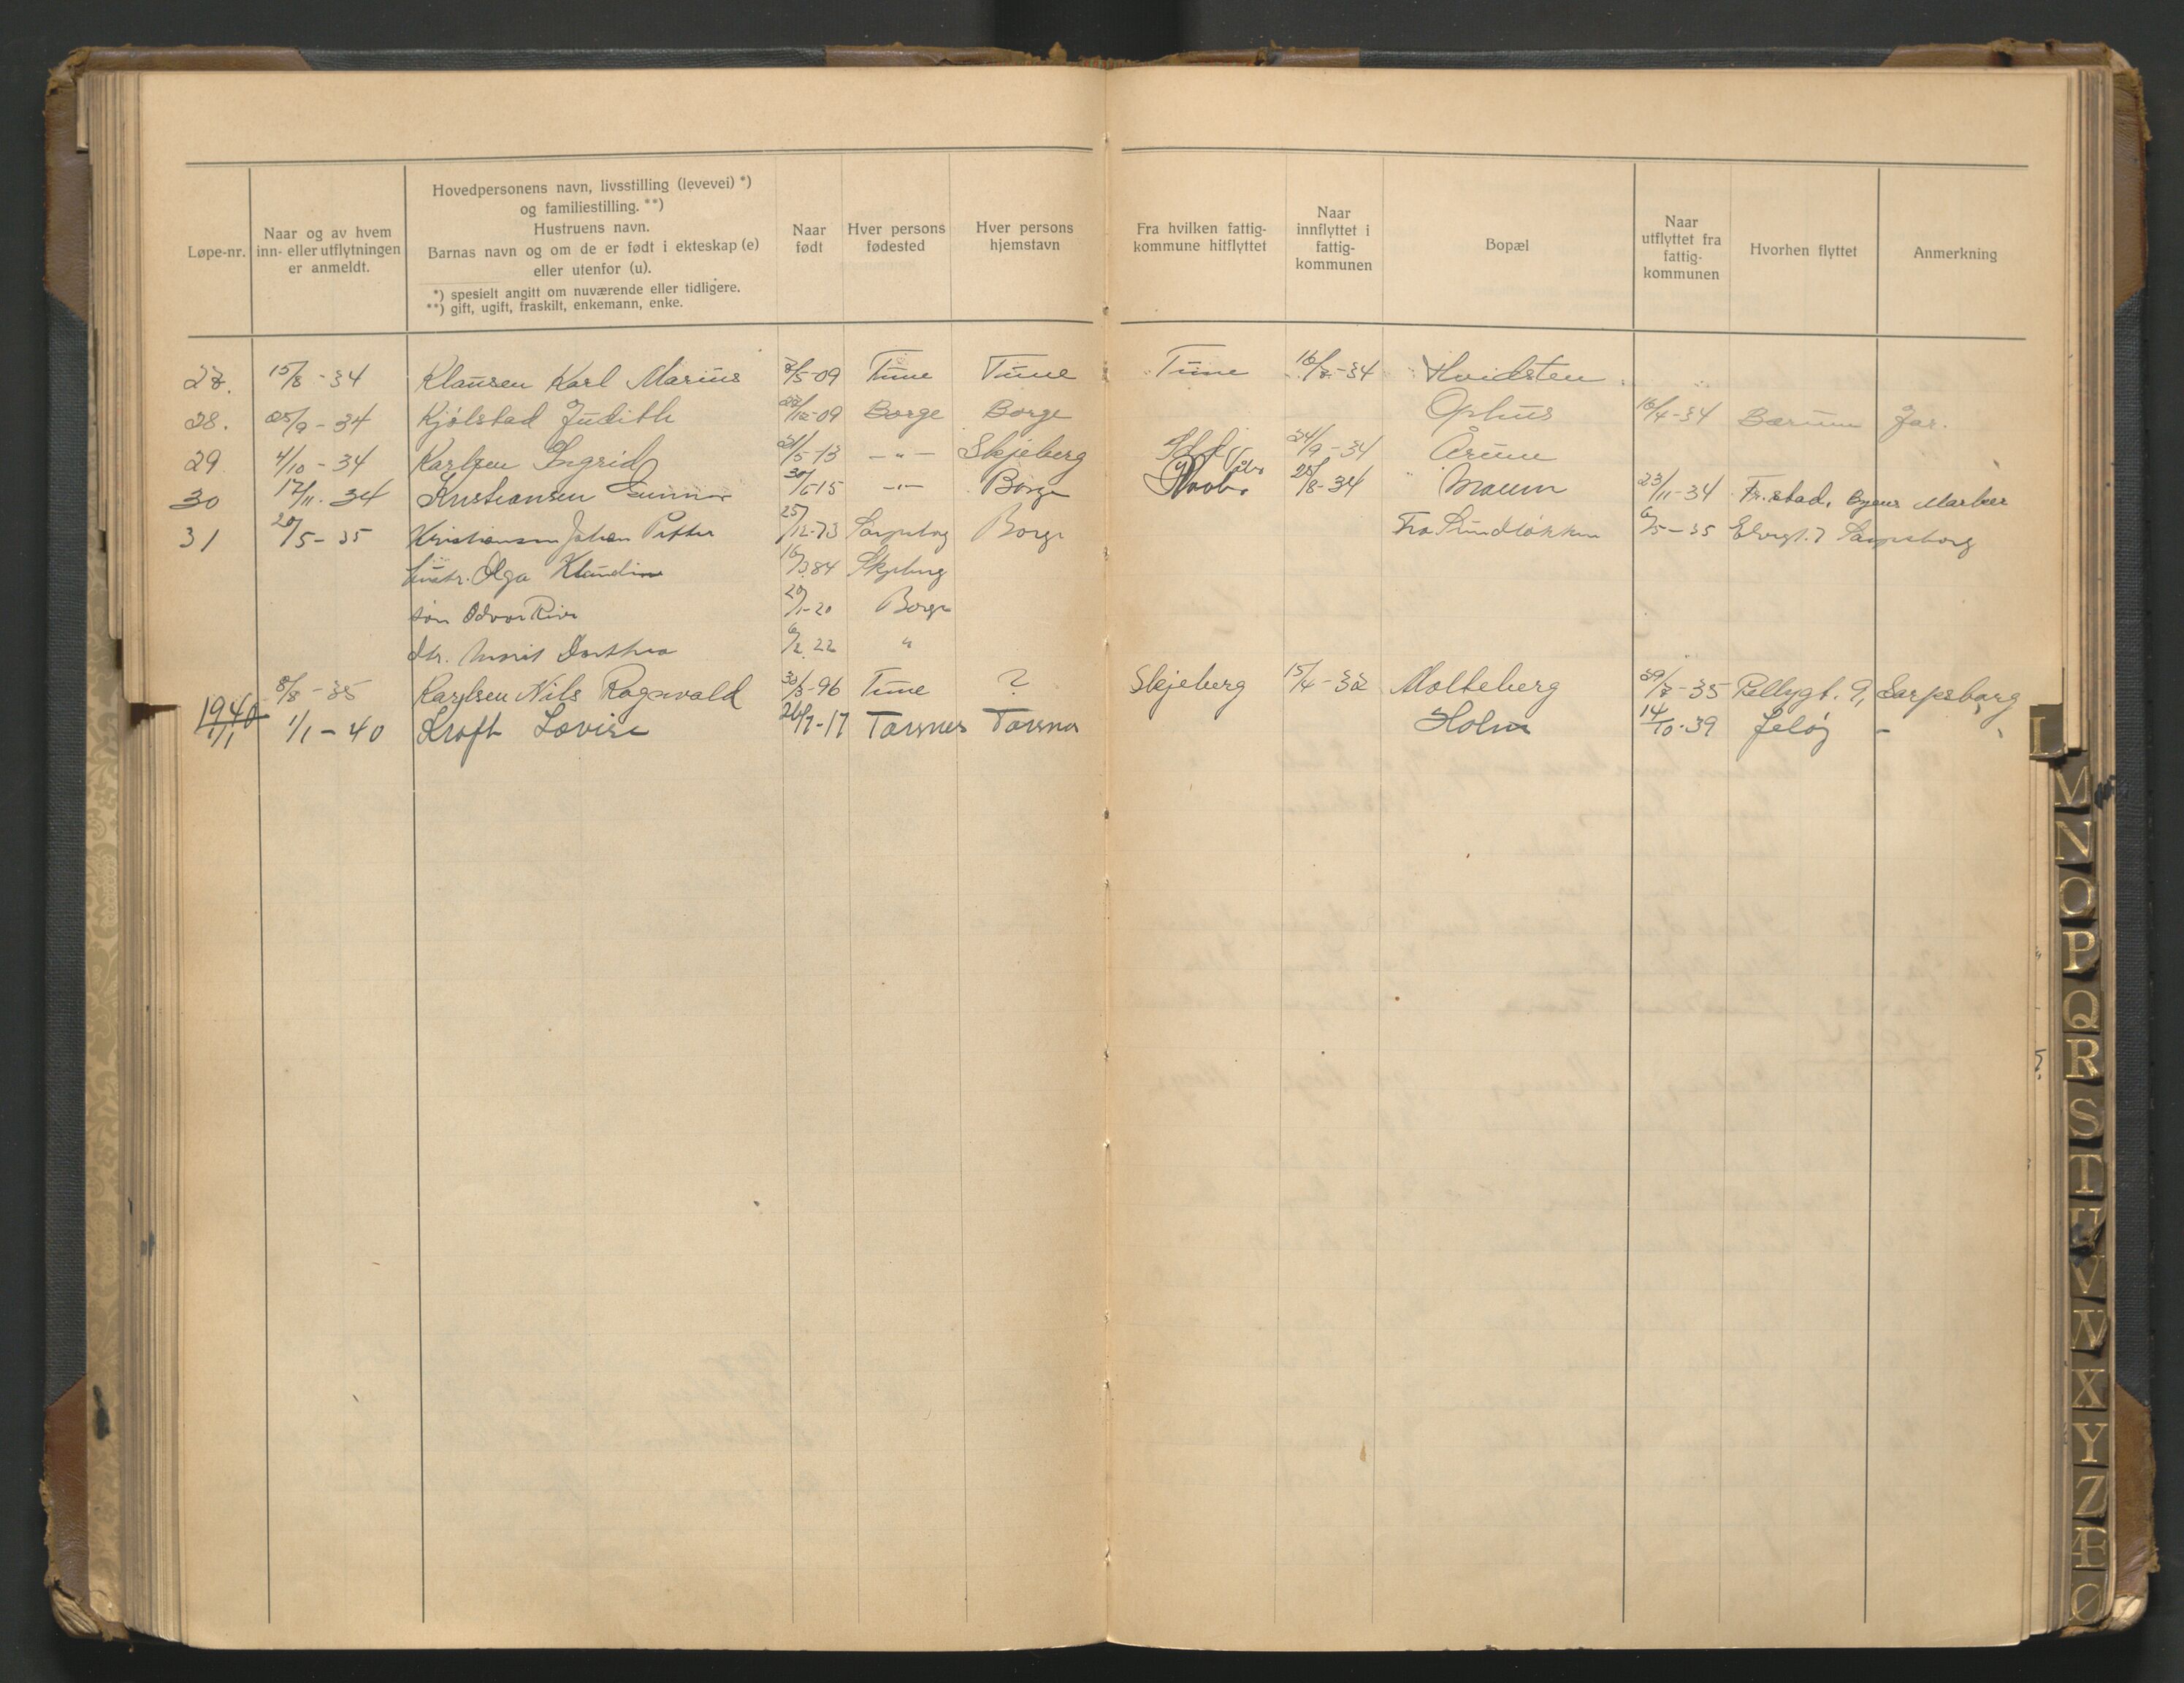 Løpe-nr.
Naar og av hvem inn- eller utflytningen er anmeldt.
Hovedpersonens navn, livsstilling (levevei) *)
og familiestilling. **)
Hustruens navn.
Barnas navn og om de er født i ekteskap (e)
eller utenfor (u).
*) spesielt angitt om nuværende eller tidligere.
**) gift, ugift, fraskilt, enkemann, enke.
Naar født
Hver persons fødested
Hver persons hjemstavn
Fra hvilken fattig-kommune hitflyttet
Naar innflyttet i fattig-kommunen
Bopæl
Naar utflyttet fra fattig-kommunen
Hvorhen flyttet
Anmerkning
27. 15/8 - 34 Klausen Karl Marius 7/5-09 Tune Tune Tune 16/7-34 Hvidsten
28. 25/9 - 34 Kjølstad Judith 22/12-09 Borge Borge Ophus 16/4-34 Bærum Jar.
29 4/10 - 34 Karlsen Ingrid 21/5-13 -"- Skjeberg 24/9-34 Årum
30 17/11-34 Kristiansen Gunnar 30/6 15 -"- Borge 25/8-34 Moum 23/11-34 Fr.stad, Byens Marker
31 20/5-35 Kristiansen Johan Petter 25/12-73 Sarpsborg Borge Fra Sundløkken 6/5-35 7 Sarpsborg
hustr. Olga Klaudine 16/3 84 Skjeberg
søn Odvar 20/1-20 Borge
dtr. Marit Dorthea 6/2 22 "
8/8 - 35 Karlsen Nils Ragnvald 30/3-96 Tune ? Skjeberg 15/4-32 Molteberg 29/7-35 9, Sarpsborg
1940 1/1 1/1 - 40 Kroft Lovise 26/7-17 Torsnes Torsnes Holm 14/10-39 Jeløy -
L
M
N
O
P
Q
R
S
T
U
V
W
X
Y
Z
Æ
Ø